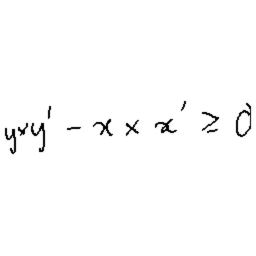 y × y' - x × x' ≥ 0